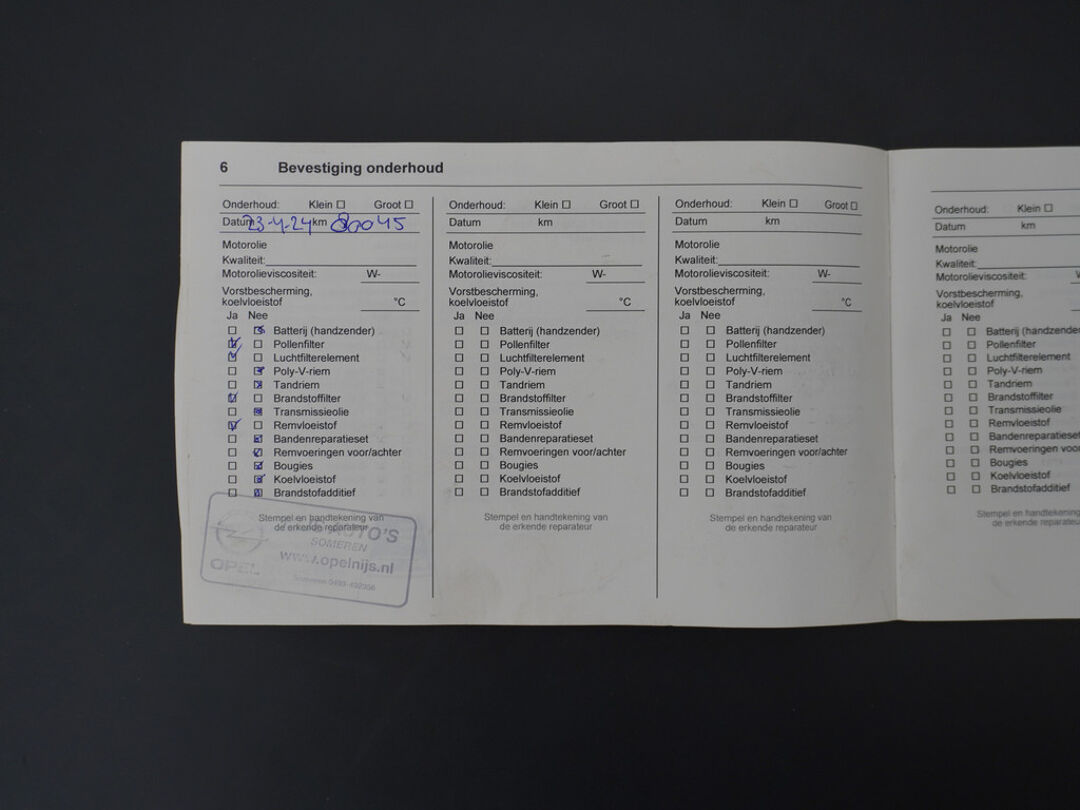 6 Bevestiging onderhoud
Onderhoud: Klein ☐ Groot ☐
Datum 23-4-24 km 80045
Motorolie
Kwaliteit:
Motorolieviscositeit: W-
Vorstbescherming,
koelvloeistof °C
Ja Nee
Batterij (handzender)
Pollenfilter
Luchtfilterelement
Poly-V-riem
Tandriem
Brandstoffilter
Transmissieolie
Remvloeistof
Bandenreparatieset
Remvoeringen voor/achter
Bougies
Koelvloeistof
Brandstofadditief
Stempel en handtekening van
de erkende reparateur
AUTO'S
SOMEREN
www.opelnijs.nl
OPEL
Onderhoud: Klein ☐ Groot ☐
Datum km
Motorolie
Kwaliteit:
Motorolieviscositeit: W-
Vorstbescherming,
koelvloeistof °C
Ja Nee
Batterij (handzender)
Pollenfilter
Luchtfilterelement
Poly-V-riem
Tandriem
Brandstoffilter
Transmissieolie
Remvloeistof
Bandenreparatieset
Remvoeringen voor/achter
Bougies
Koelvloeistof
Brandstofadditief
Stempel en handtekening van
de erkende reparateur
Onderhoud: Klein ☐ Groot ☐
Datum km
Motorolie
Kwaliteit:
Motorolieviscositeit: W-
Vorstbescherming,
koelvloeistof °C
Ja Nee
Batterij (handzender)
Pollenfilter
Luchtfilterelement
Poly-V-riem
Tandriem
Brandstoffilter
Transmissieolie
Remvloeistof
Bandenreparatieset
Remvoeringen voor/achter
Bougies
Koelvloeistof
Brandstofadditief
Stempel en handtekening van
de erkende reparateur
Onderhoud: Klein ☐
Datum km
Motorolie
Kwaliteit:
Motorolieviscositeit:
Vorstbescherming,
koelvloeistof
Ja Nee
Batterij (handzender
Pollenfilter
Luchtfilterelement
Poly-V-riem
Tandriem
Brandstoffilter
Transmissieolie
Remvloeistof
Bandenreparatieset
Remvoeringen voo
Bougies
Koelvloeistof
Brandstofadditief
Stempel en handtekening
de erkende reparateu